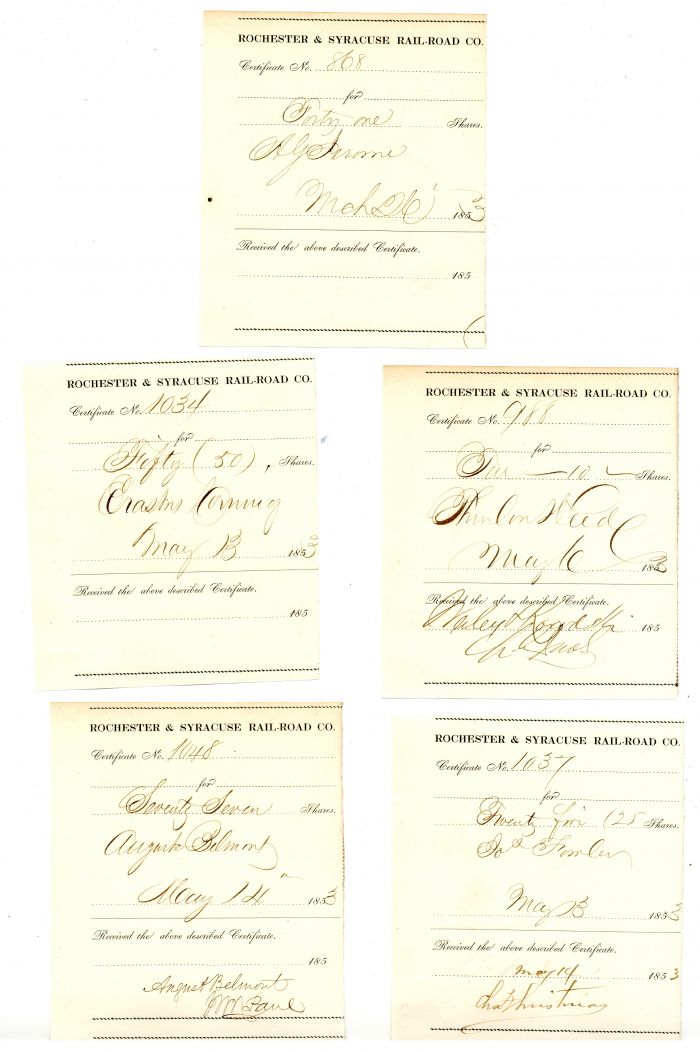 ROCHESTER & SYRACUSE RAIL-ROAD CO.
Certificate No. 868
for
Forty one Shares.
A G Jerome
Mch 26 1853
Received the above described Certificate.
185
ROCHESTER & SYRACUSE RAIL-ROAD CO.
Certificate No. 1034
for
Fifty (50), Shares.
Erastus Corning
May 13 1853
Received the above described Certificate.
185
ROCHESTER & SYRACUSE RAIL-ROAD CO.
Certificate No. 988
for
Ten — 10 — Shares.
Thurlow Weed
May 6 1853
Received the above described Certificate.
185
ROCHESTER & SYRACUSE RAIL-ROAD CO.
Certificate No. 1048
for
Seventy Seven Shares.
August Belmont
May 14 1853
Received the above described Certificate.
185
August Belmont
ROCHESTER & SYRACUSE RAIL-ROAD CO.
Certificate No. 1037
for
Twenty five (25 Shares.
Jos Fowler
May 13 1853
Received the above described Certificate.
May 14 1853
Chas Christmas